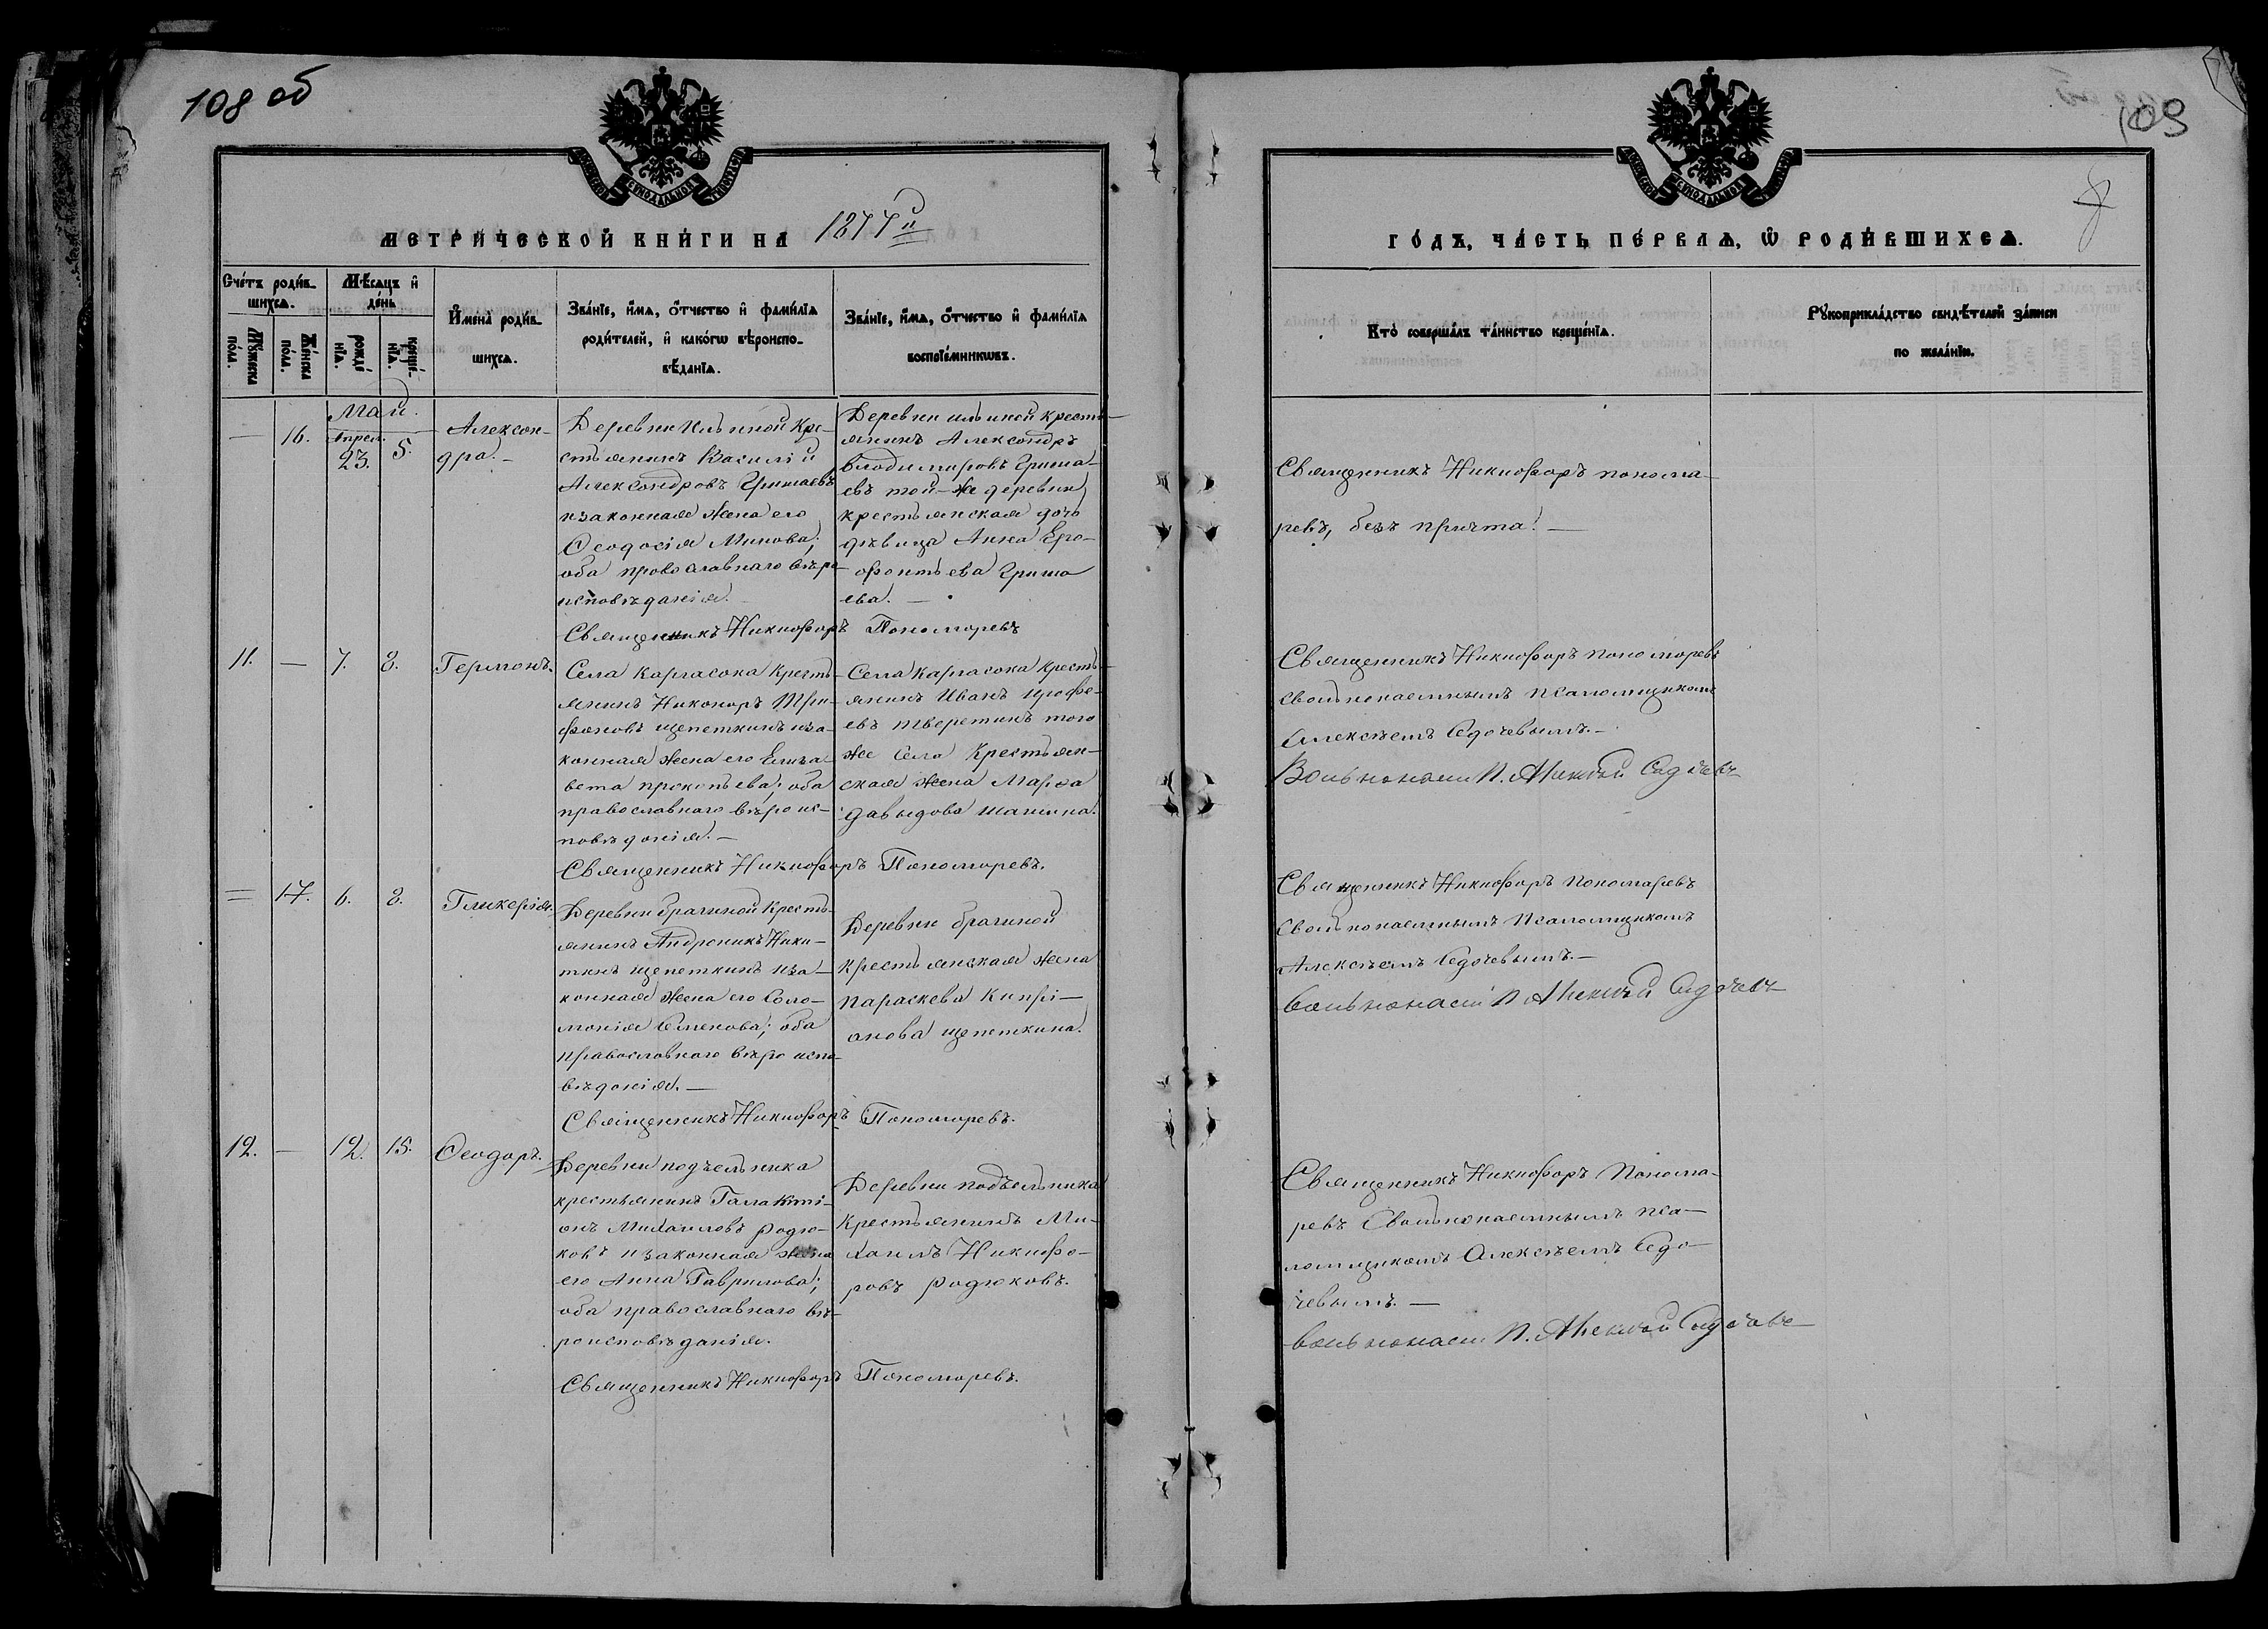 108 об
109
8
МОСКОВСКОЙ СѴНОДАЛЬНОЙ ТИПОГРАФІИ
МЕТРИЧЕСКОЙ КНИГИ НА 1877й
Счетъ родив-
шихся.
Мѣсяцъ и
день
Мужеска
пола.
Женска
пола.
рожде
нія.
креще-
нія.
Имена родив-
шихся.
Званіе, имя, отчество и фамилія
родителей, и какогѡ вѣроиспо-
вѣданія.
Званіе, имя, отчество и фамилія
воспріемниковъ.
Май.
— 16. Апрел. 23. 5.
Алексан-
дра.-
Деревни Ильиной Кре-
стьянинъ Василій
Александровъ Гришаевъ
и законная жена его
Ѳеодосія Минова;
оба православнаго вѣро
исповѣданія.
Деревни ильиной кресть-
янинъ Александръ
владимировъ Гриша-
евъ той-же деревни
крестьянская дочь
дѣвица Анна Еро-
фонтьева Гриша
ева. —
Священникъ Никифоръ Пономаревъ
11. — 7. 8. Германъ.
Села Каргасока Кресть-
янинъ Никаноръ Три-
фоновъ щепеткинъ и за-
конная жена его Елиза-
вета прокопьева; оба
православнаго вѣроис-
повѣданія.—
Села Каргасока Кресть-
янинъ Иванъ Ерофе-
евъ тверетинъ того
же Села Крестьян-
ская жена Марѳа
давыдова шанина.
Священникъ Никифоръ Пономаревъ.
= 17. 6. 8. Гликерія.
Деревни брагиной Кресть-
янинъ Андроникъ Ники-
тинъ щепеткинъ и за-
конная жена его Соло-
монія Семенова; оба
православнаго вѣро испо-
вѣданія.—
Деревни брагиной
крестьянская жена
параскева Кипрі-
анова щепеткина.
Священникъ Никифоръ Пономаревъ.
12. — 12. 15. Ѳеодоръ.
Деревни подъельника
крестьянинъ Галактi-
онъ Михаиловъ родю-
ковъ и законная жена
его Анна Гаврилова;
оба православнаго вѣ-
роисповѣданія.
Деревни подъельника
Крестьянинъ Ми-
хаилъ Никифо-
ровъ родюковъ.
Священникъ Никифоръ Пономаревъ.
МОСКОВСКОЙ СѴНОДАЛЬНОЙ ТИПОГРАФІИ
ГОДЪ, ЧАСТЬ ПЕРВАЯ, Ѡ РОДИВШИХСЯ.
Кто совершалъ таинство крещенія.
Рукоприкладство свидѣтелей записи
по желанію.
Священникъ Никифоръ понома-
ревъ, безъ причта.—
Священникъ Никифоръ пономаревъ
свольнонаемнымъ псаломщикомъ
Алексѣемъ Седачевымъ.—
Вольнонаем П. Алексѣй Седачевъ
Священникъ Никифоръ пономаревъ
свольнонаемнымъ псаломщикомъ
Алексѣемъ Седачевымъ.—
вольнонаем П Алексѣй Седачевъ
Священникъ Никифоръ понома-
ревъ свольнонаемнымъ пса-
ломщикомъ Алексѣемъ Седа-
чевымъ.—
вольнонаем П. Алексѣй Седачевъ